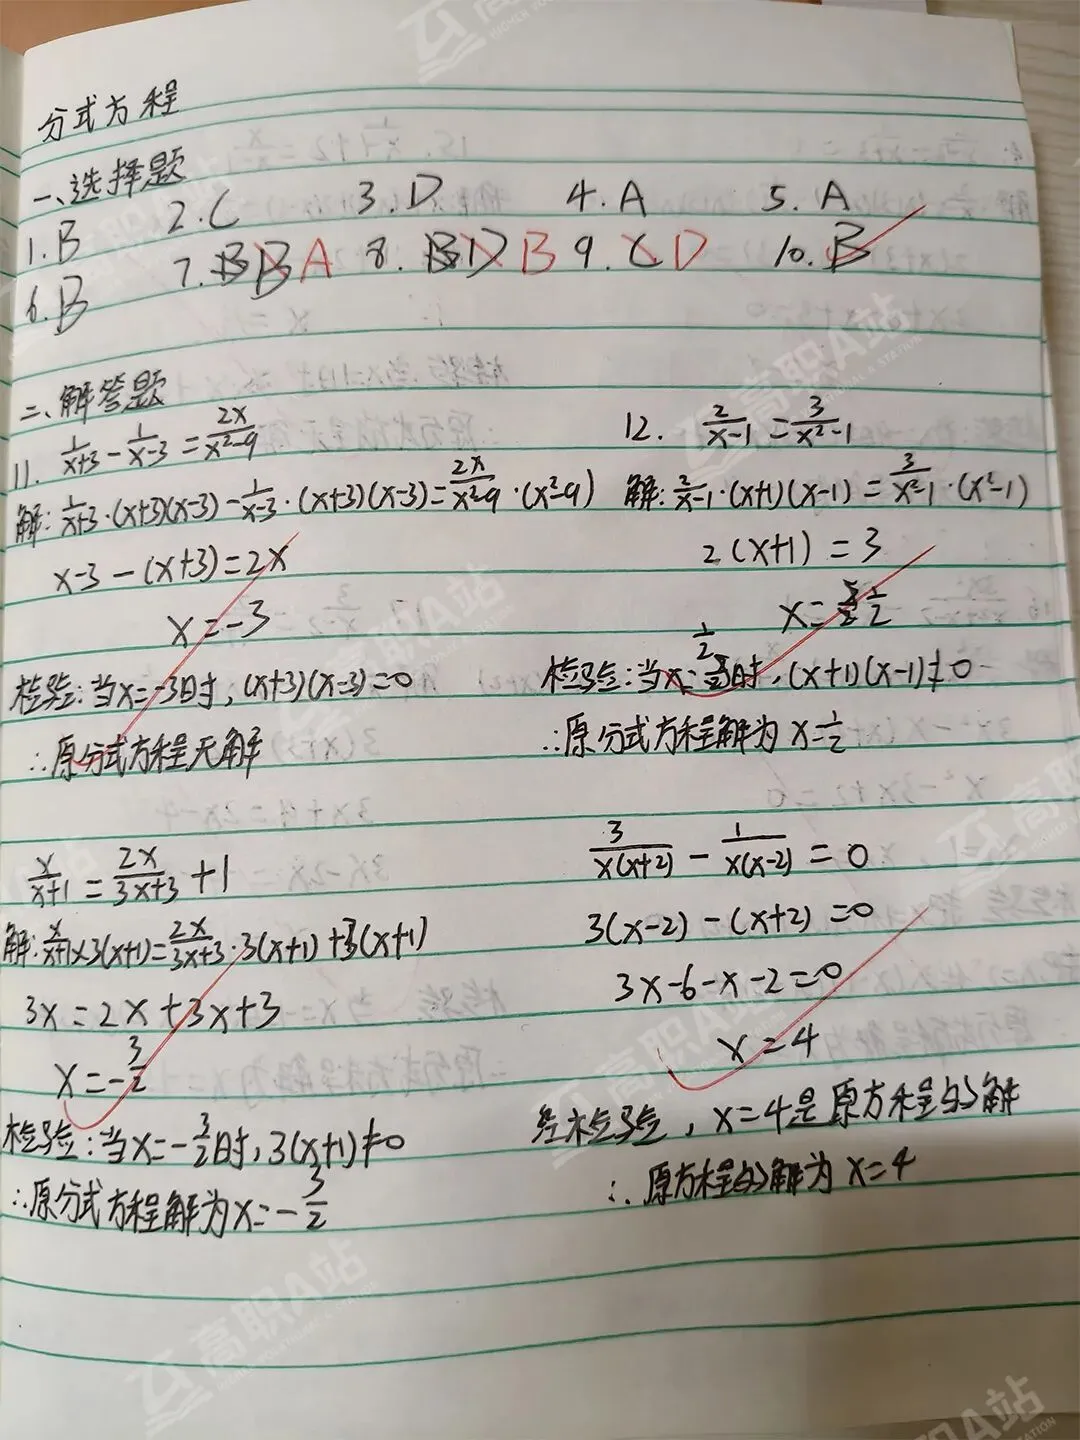 分式方程
一、选择题
1.B 2.C 3.D 4.A 5.A
6.B 7.B A 8.D B 9.C D 10.B
二、解答题
11. 1/(x+3) - 1/(x-3) = 2x/(x²-9)
解: 1/(x+3)·(x+3)(x-3) - 1/(x-3)·(x+3)(x-3) = 2x/(x²-9)·(x²-9)
x-3-(x+3)=2x
x=-3
检验:当x=-3时,(x+3)(x-3)=0
∴原分式方程无解
12. 2/(x-1) = 3/(x²-1)
解: 2/(x-1)·(x+1)(x-1) = 3/(x²-1)·(x²-1)
2(x+1)=3
x=1/2
检验:当x=1/2时,(x+1)(x-1)≠0
∴原分式方程解为x=1/2
x/(x+1) = 2x/(3x+3) +1
解: x/(x+1)×3(x+1) = 2x/(3x+3)·3(x+1)+3(x+1)
3x=2x+3x+3
x=-3/2
检验:当x=-3/2时,3(x+1)≠0
∴原分式方程解为x=-3/2
3/(x(x+2)) - 1/(x(x-2)) = 0
3(x-2)-(x+2)=0
3x-6-x-2=0
x=4
经检验,x=4是原方程的解
∴原方程的解为x=4
高职A站